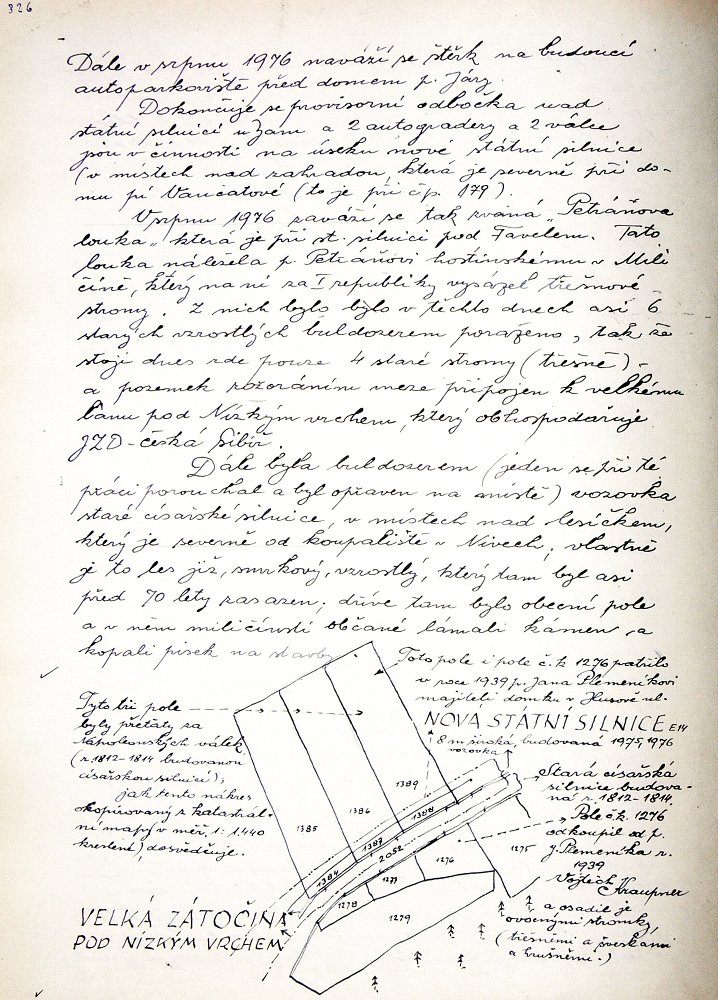 326
Dále v srpnu 1976 naváží se štěrk na budoucí
autoparkoviště před domem p. Járy.
Dokončuje se provisorní odbočka nad
státní silnicí u Zam a 2 autogradery a 2 válce
jsou v činnosti na úseku nové státní silnice
(v místech nad zahradou, která je severně při do-
mu pí Vančatové (to je při čp. 179).
V srpnu 1976 zaváží se tak zvaná „Petráňova
louka„ která je při st. silnici pod Favelem. Tato
louka náležela p. Petráňovi hostinskému v Mili
číně, který na ní za I republiky vysázel třešňové
stromy. Z nich bylo bylo v těchto dnech asi 6
starých vzrostlých buldozerem poraženo, tak že
stojí dnes zde pouze 4 staré stromy (třešně) -
a pozemek rozoráním meze připojen k velkému
lánu pod Nízkým vrchem, který obhospodařuje
JZD - česká Sibiř.
Dále byla buldozerem (jeden se při té
práci porouchal a byl opraven na místě) vozovka
staré císařské silnice, v místech nad lesíčkem,
který je severně od koupaliště v Nivech; vlastně
je to les již, smrkový, vzrostlý, který tam byl asi
před 70 lety zasazen; dříve tam bylo obecní pole
a v něm miličínští občané lámali kámen a
kopali písek na stavby.
Toto pole i pole č.k 1276 patřilo
v roce 1939 p. Jana Plemeníkovi
majiteli domku v Husově ul.
Tyto tři pole
byly přetáty za
Napoleonských válek
(r. 1812-1814 budovanou
císařskou silnicí),
jak tento nákres
okopírovaný z katastrál-
ní mapy v měř. 1:1.440
kreslení, dosvědčuje.
NOVA STÁTNÍ SILNICE E14
8 m široká, budovaná 1975, 1976
vozovka
Stará císařská
silnice budova-
ná r. 1812-1814.
Pole č.k. 1276
odkoupil od p.
J. Plemeníka r.
1939
Vojtěch
Kraupner
a osadil je
ovocnými stromky,
(třešněmi a švestkami
a hrušněmi.)
1389
1386
1385
1388
1387
1384
2052
1276
1275
1277
1278
1279
VELKÁ ZÁTOČINA
POD NÍZKÝM VRCHEM